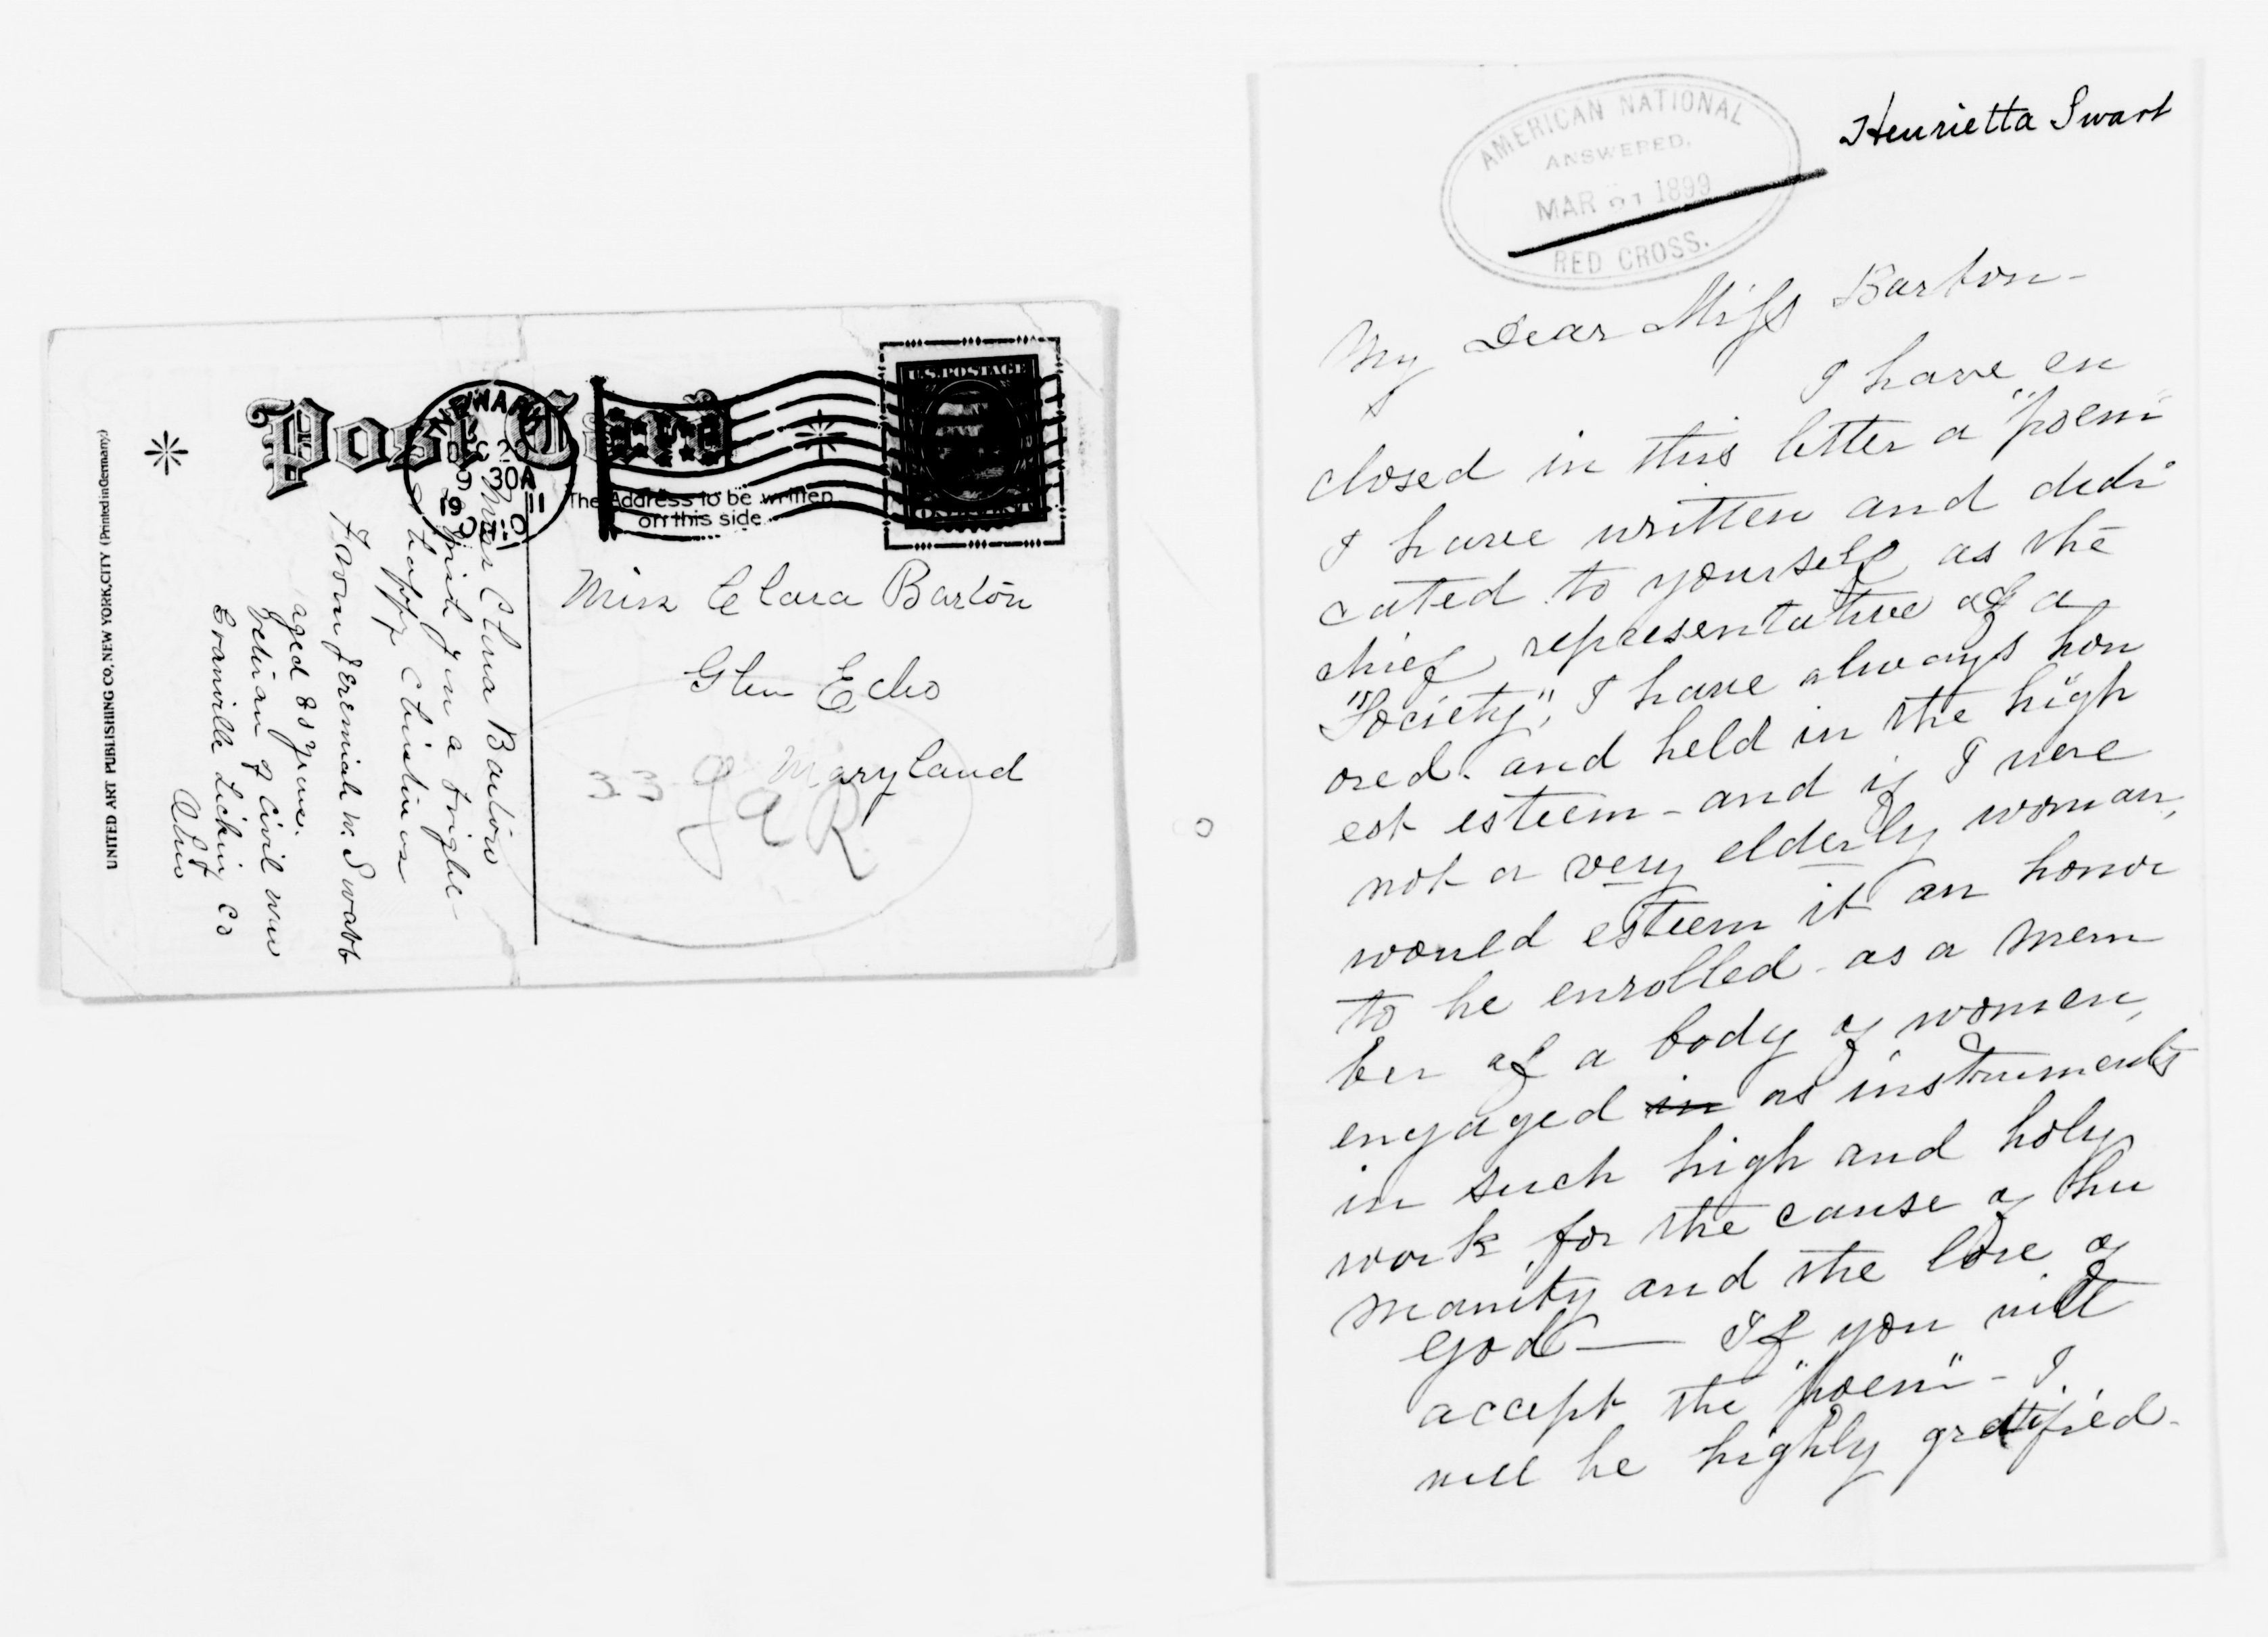 UNITED ART PUBLISHING CO, NEW YORK, CITY (Printed in Germany.)
Post Card
NEWARK
30A
19 11
OHIO
U.S. POSTAGE
The Address to be written
on this side
Miss Clara Barton
you a bright
happy Christmas
From Jeremiah W. Swartt
aged 83 years.
Veteran of Civil War
Granville Licking Co
Ohio
Miss Clara Barton
Glen Echo
Maryland
33
GAR
AMERICAN NATIONAL
ANSWERED.
MAR 1899
RED CROSS.
Henrietta Swart
My Dear Miss Barton -
I have en
closed in this letter a "poem"
I have written and dedi
cated to yourself as the
chief representative of a
"Society", I have always hon
ored. and held in the high
est esteem - and if I were
not a very elderly woman,
would esteem it an honor
to be enrolled as a mem
ber of a body of women,
engaged in as instruments
in such high and holy
work, for the cause of hu
manity and the love of
God — If you will
accept the "poem" - I
will be highly gratified -